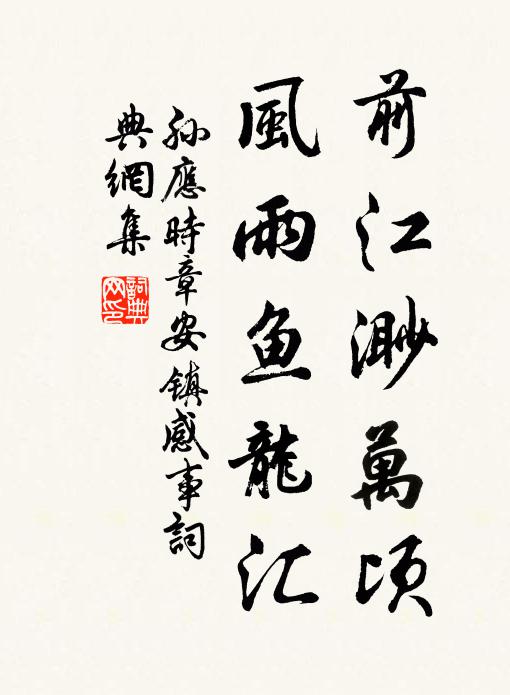 前江渺萬頃
風雨鱼龍汇
孙應時章安镇感事詞
典網集
詞典
网印